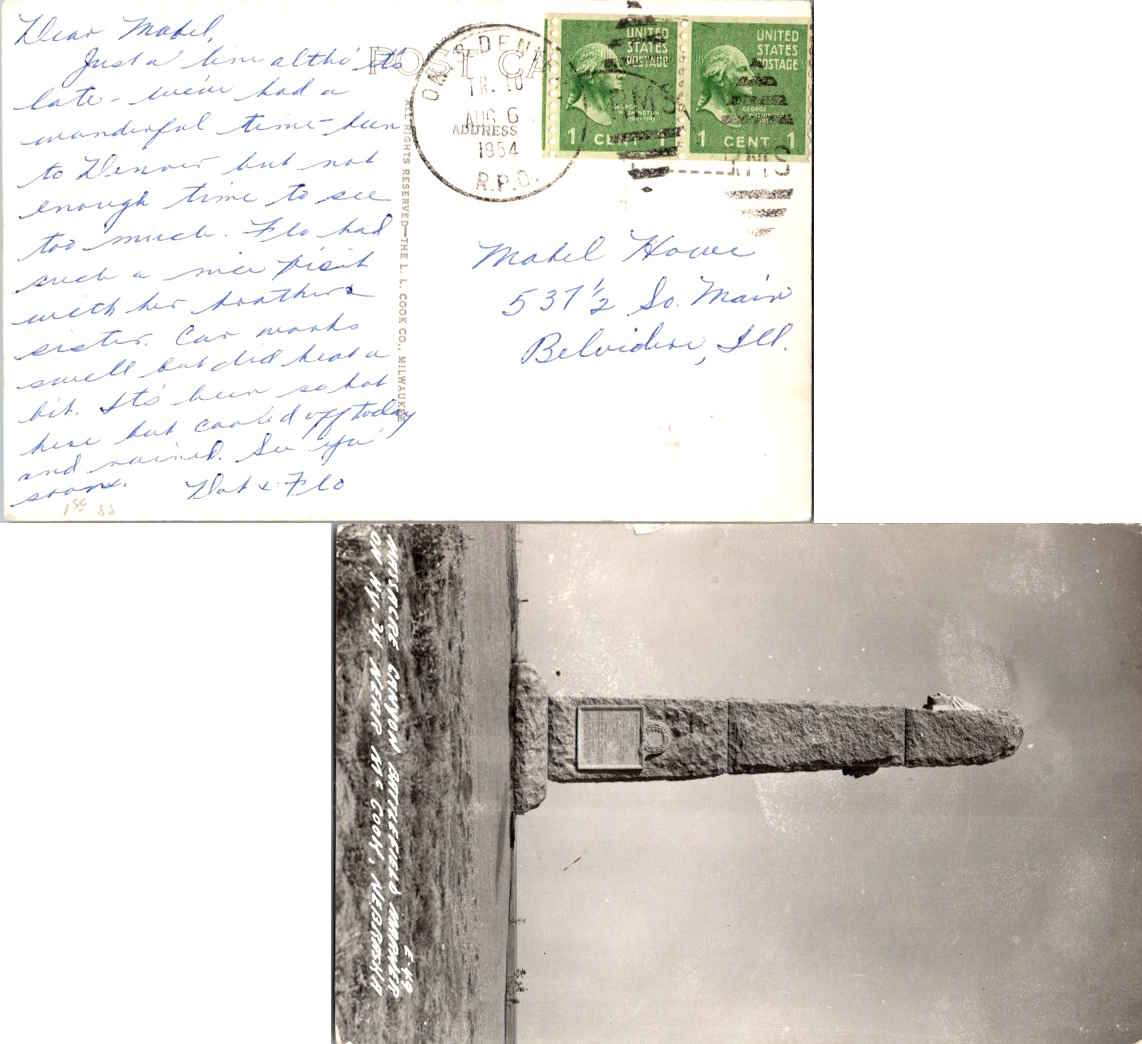 Dear Mabel,
Just a line altho' it's
late - we've had a
wonderful time - been
to Denver but not
enough time to see
too much. Flo had
such a nice visit
with her brother &
sister. Car works
swell but did heat a
bit. It's been so hot
here but cooled off today
and rained. See you
soon. Dot & Flo
1 50 85
POST CA
ADDRESS
ALL RIGHTS RESERVED—THE L. L. COOK CO., MILWAUKEE
TR. 10
AUG 6
1954
R.P.O.
UNITED
STATES
POSTAGE
GEORGE
WASHINGTON
1 CENT 1
UNITED
STATES
POSTAGE
GEORGE
WASHINGTON
1 CENT 1
RMS
RMS
Mabel Howe
537 1/2 So. Main
Belvidere, Ill.
E-49
MASSACRE CANYON BATTLEFIELD MARKER
ON HY. 34 NEAR Mc COOK, NEBRASKA